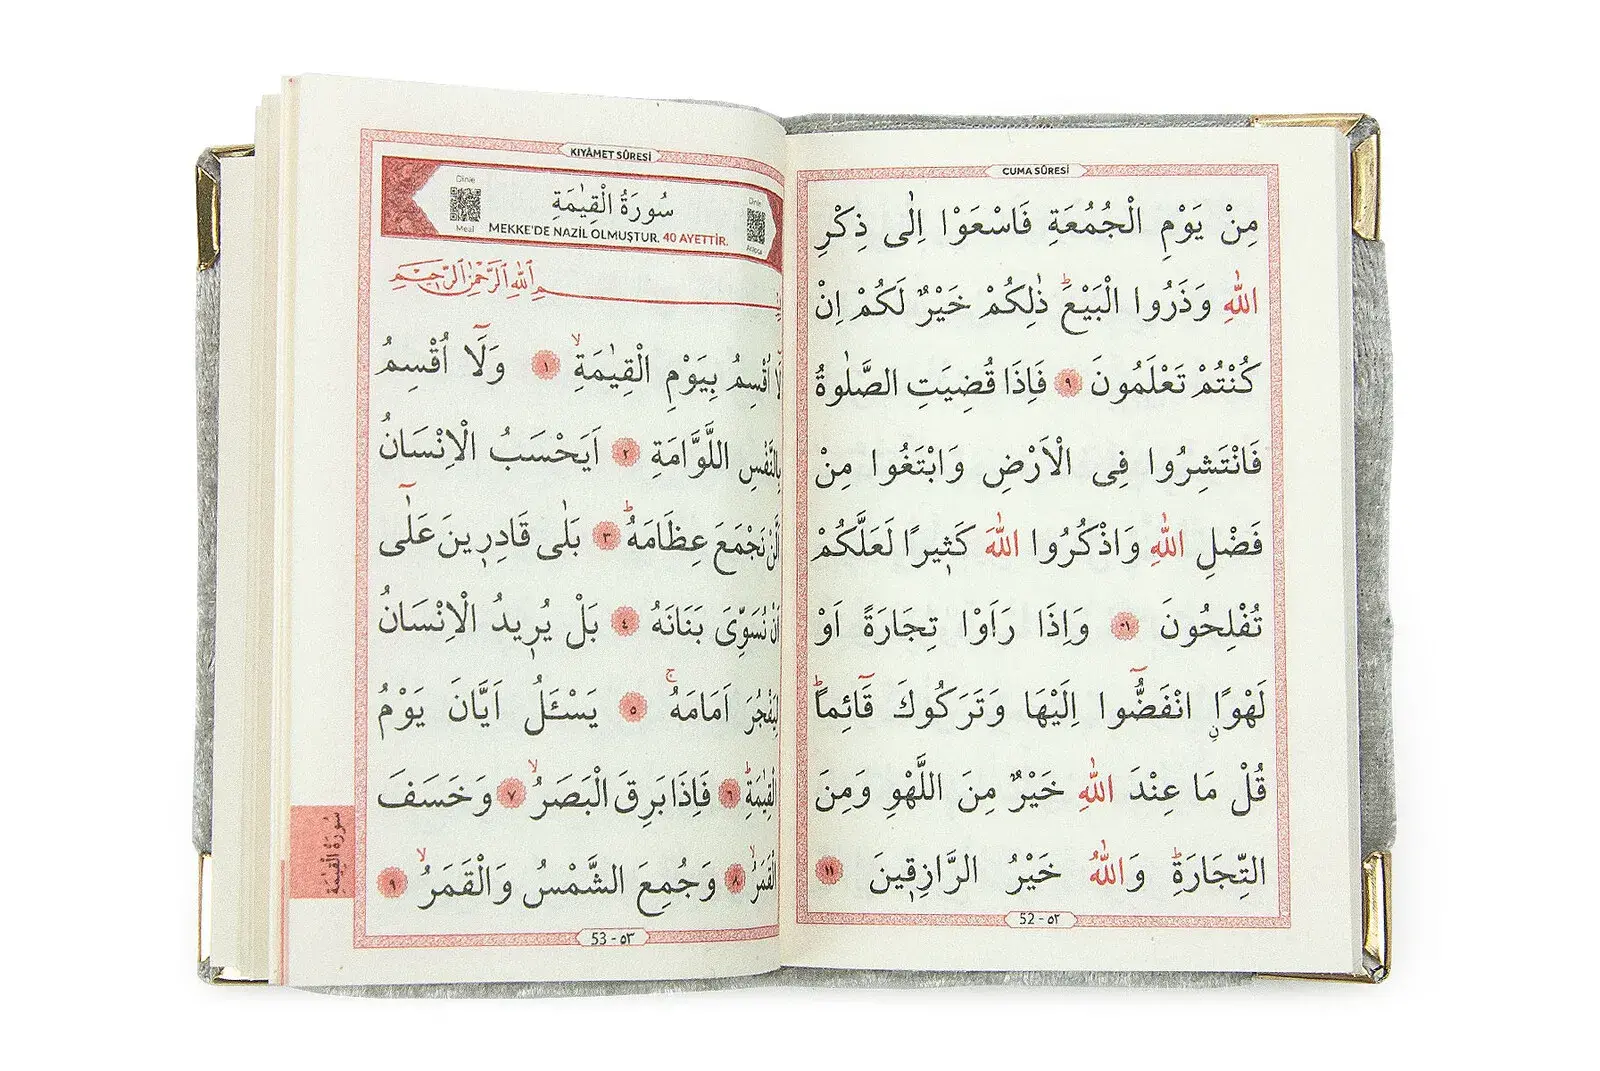 CUMA SÛRESİ
مِنْ يَوْمِ الْجُمُعَةِ فَاسْعَوْا اِلٰى ذِكْرِ
اللّٰهِ وَذَرُوا الْبَيْعَۜ ذٰلِكُمْ خَيْرٌ لَكُمْ اِنْ
كُنْتُمْ تَعْلَمُونَ ٩ فَاِذَا قُضِيَتِ الصَّلٰوةُ
فَانْتَشِرُوا فِي الْاَرْضِ وَابْتَغُوا مِنْ
فَضْلِ اللّٰهِ وَاذْكُرُوا اللّٰهَ كَث۪يرًا لَعَلَّكُمْ
تُفْلِحُونَ ١٠ وَاِذَا رَاَوْا تِجَارَةً اَوْ
لَهْوًاۨ انْفَضُّٓوا اِلَيْهَا وَتَرَكُوكَ قَٓائِمًاۜ
قُلْ مَا عِنْدَ اللّٰهِ خَيْرٌ مِنَ اللَّهْوِ وَمِنَ
التِّجَارَةِۜ وَاللّٰهُ خَيْرُ الرَّازِق۪ينَ ١١
52 - ٥٢
KIYÂMET SÛRESİ
Dinle
Meal
سُورَةُ الْقِيٰمَةِ
MEKKE'DE NAZİL OLMUŞTUR. 40 AYETTİR.
Dinle
بِسْمِ اللّٰهِ الرَّحْمٰنِ الرَّح۪يمِ
لَٓا اُقْسِمُ بِيَوْمِ الْقِيٰمَةِۙ ١ وَلَٓا اُقْسِمُ
بِالنَّفْسِ اللَّوَّامَةِ ٢ اَيَحْسَبُ الْاِنْسَانُ
اَلَّنْ نَجْمَعَ عِظَامَهُۜ ٣ بَلٰى قَادِر۪ينَ عَلٰٓى
اَنْ نُسَوِّيَ بَنَانَهُ ٤ بَلْ يُر۪يدُ الْاِنْسَانُ
لِيَفْجُرَ اَمَامَهُۚ ٥ يَسْـَٔلُ اَيَّانَ يَوْمُ
الْقِيٰمَةِۜ ٦ فَاِذَا بَرِقَ الْبَصَرُۙ ٧ وَخَسَفَ
الْقَمَرُۙ ٨ وَجُمِعَ الشَّمْسُ وَالْقَمَرُۙ ٩
سُورَةُ الْقِيٰمَةِ
53 - ٥٣